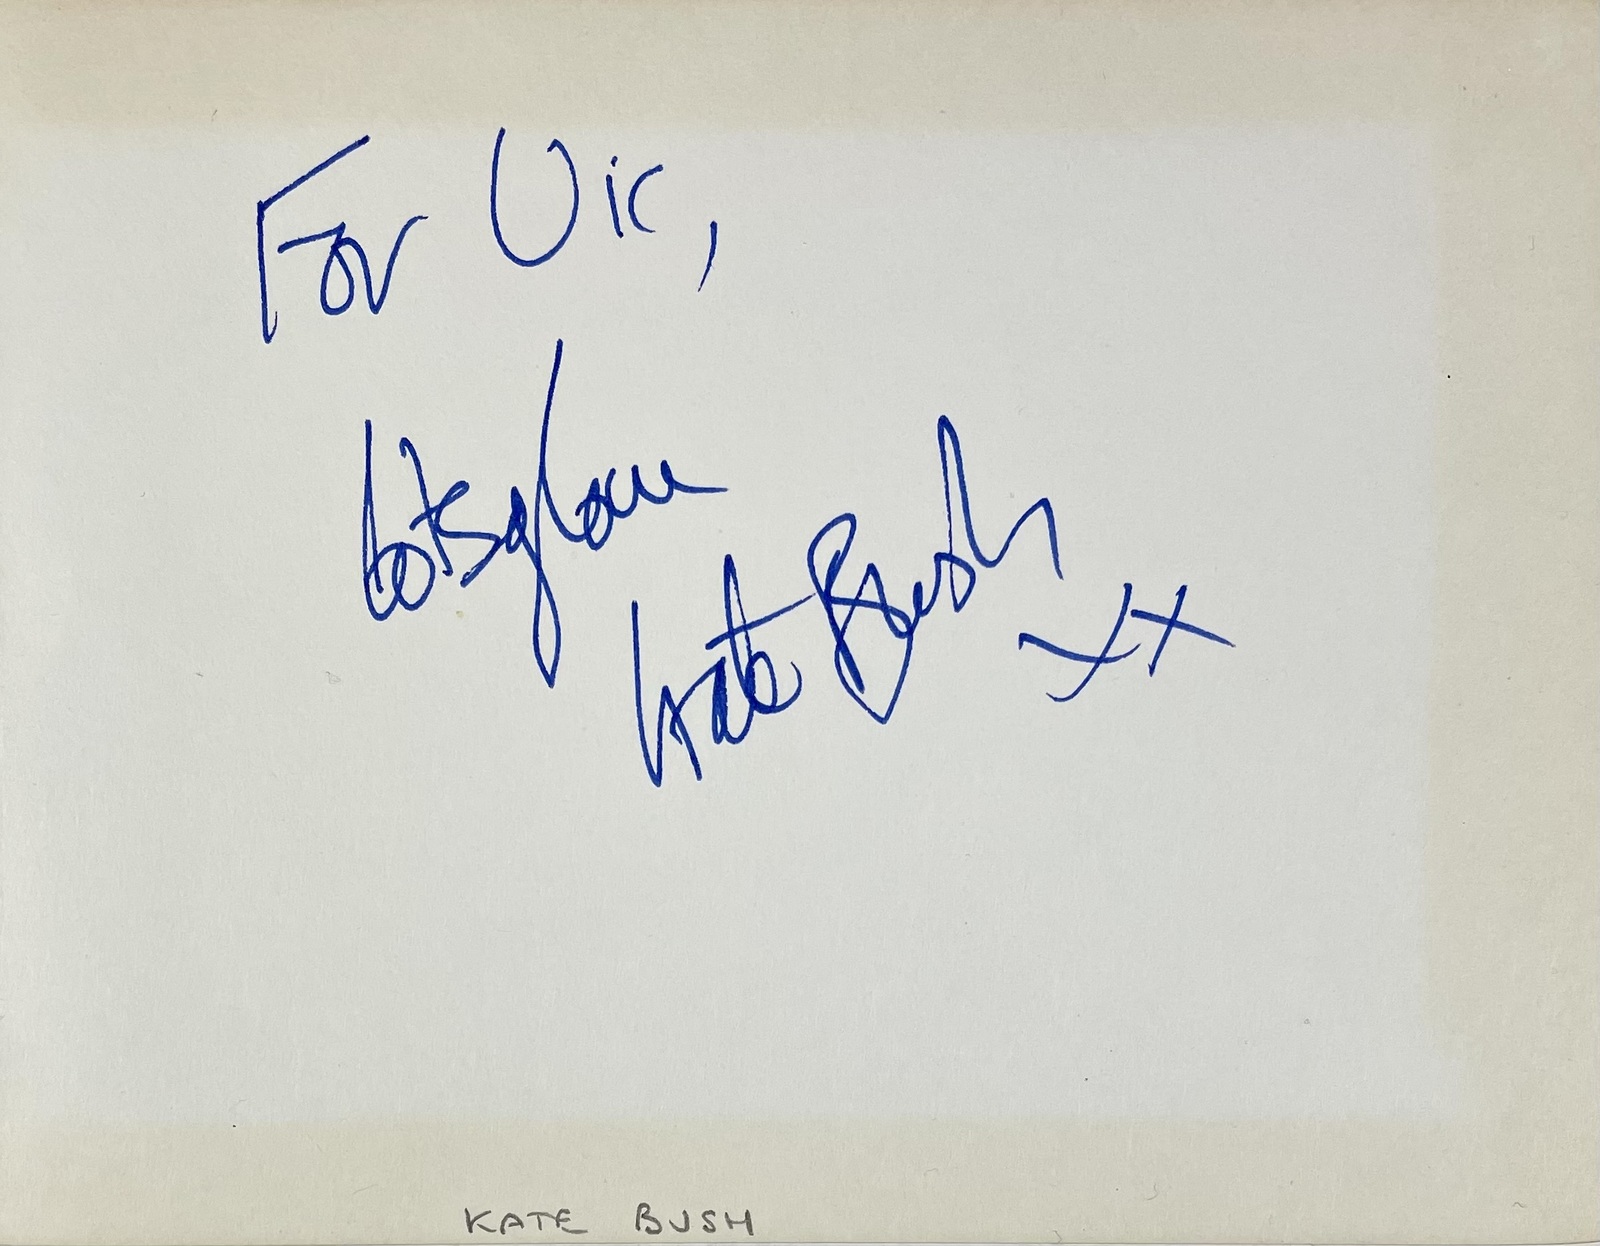 For Vic,
lots of love
Kate Bush xx
KATE BUSH